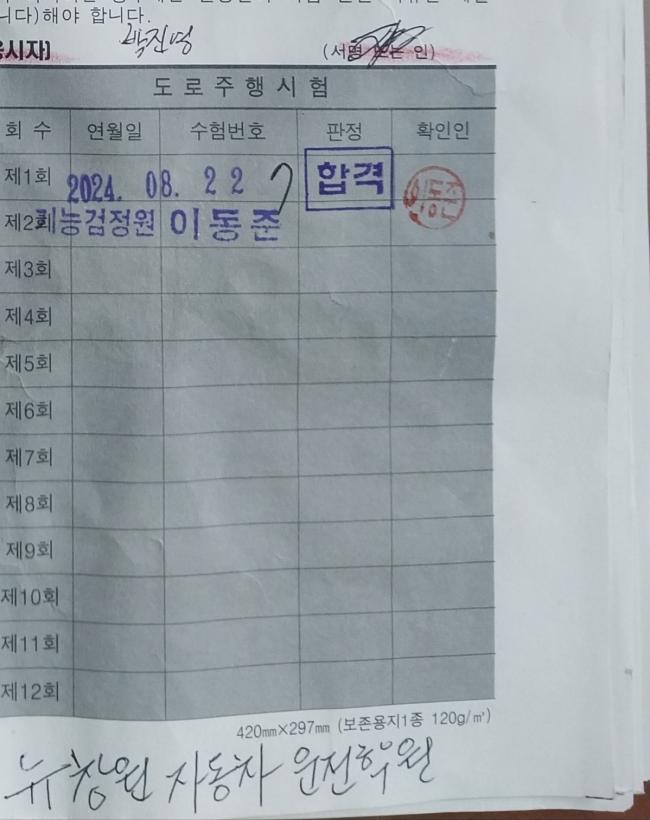 니다)해야 합니다.
응시자] 박진영 (서명 또는 인)
도로주행시험
회 수 연월일 수험번호 판정 확인인
제1회 2024. 08. 22 7 합격 이동준
제2회 기능검정원 이동준
제3회
제4회
제5회
제6회
제7회
제8회
제9회
제10회
제11회
제12회
420㎜×297㎜ (보존용지1종 120g/㎡)
뉴창원 자동차 운전학원